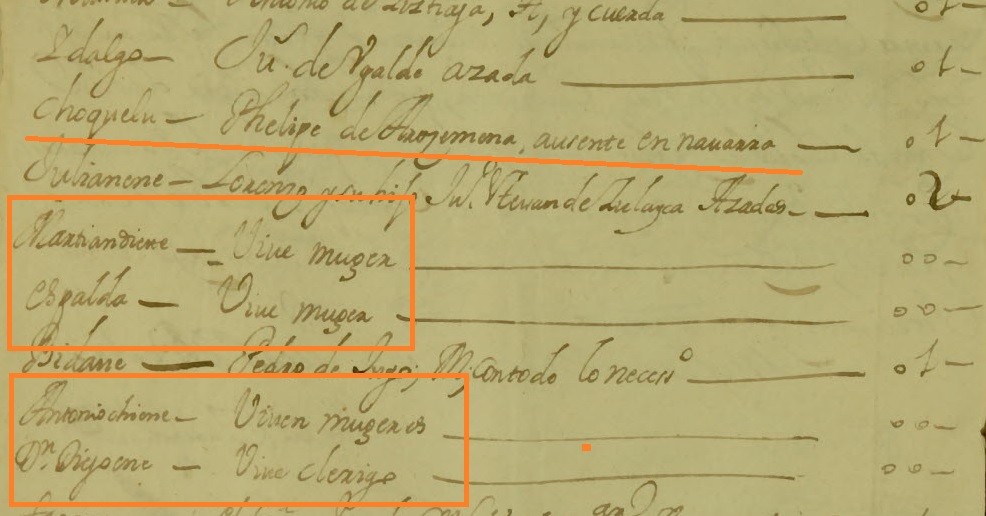 Antonio de y cuerda — 01-
Idalgo — Ju. de Vgalde azada — 01-
choquelu — Phelipe de Arozemena, ausente en nauarra — 01-
Julianene — Lorenzo y su hijo Ju. Esteuan de Zulayca Azadas — 02-
Martiandiene — Viue muger — 00-
espalda — Viue muger — 00-
Bidaue — Pedro de con todo lo necess.o — 01-
Antoniochiene — Viuen mugeres — 00-
Dn. Diegoene — Viue clerigo — 00-